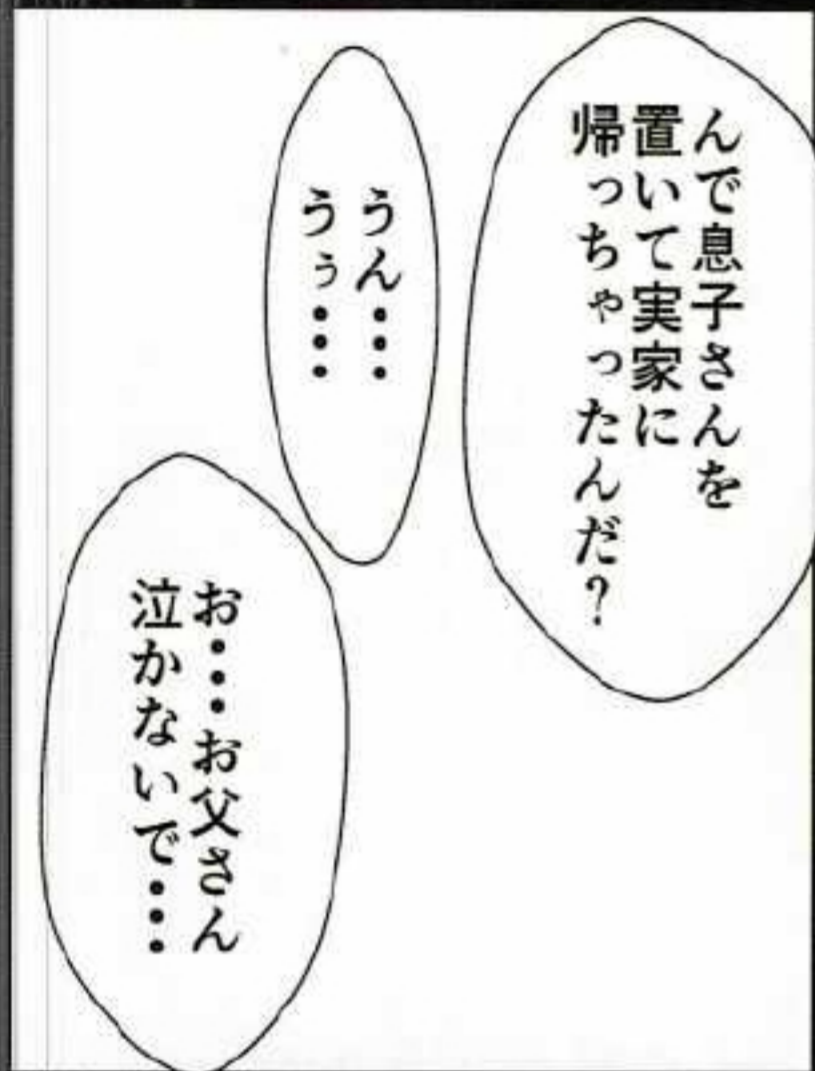 んで息子さんを
置いて実家に
帰っちゃったんだ?
うん…
うぅ…
お…お父さん
泣かないで…